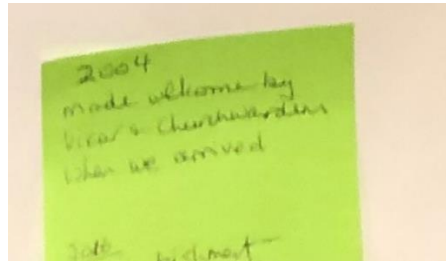 2004
made welcome by
Vicar & Churchwardens
when we arrived